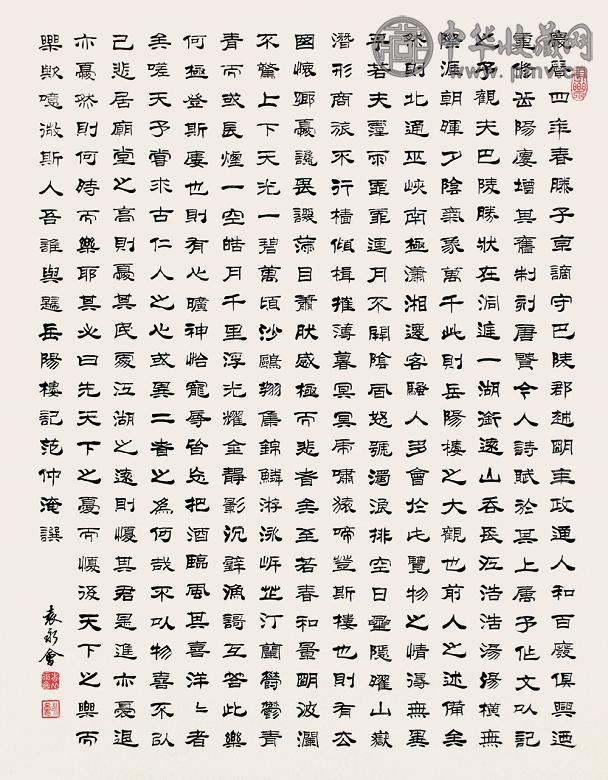 慶曆四年春滕子京謫守巴陵郡越明年政通人和百廢俱興迺
重修岳陽樓增其舊制刻唐賢今人詩賦於其上屬予作文以記
之予觀夫巴陵勝狀在洞庭一湖銜遠山吞長江浩浩湯湯橫無
際涯朝暉夕陰氣象萬千此則岳陽樓之大觀也前人之述備矣
然則北通巫峽南極瀟湘遷客騷人多會於此覽物之情得無異
乎若夫霪雨霏霏連月不開陰風怒號濁浪排空日星隱耀山嶽
潛形商旅不行檣傾楫摧薄暮冥冥虎嘯猿啼登斯樓也則有去
國懷鄉憂讒畏譏滿目蕭然感極而悲者矣至若春和景明波瀾
不驚上下天光一碧萬頃沙鷗翔集錦鱗游泳岸芷汀蘭鬱鬱青
青而或長煙一空皓月千里浮光耀金靜影沉璧漁歌互答此樂
何極登斯樓也則有心曠神怡寵辱皆忘把酒臨風其喜洋〻者
矣嗟夫予嘗求古仁人之心或異二者之為何哉不以物喜不以
己悲居廟堂之高則憂其民處江湖之遠則憂其君是進亦憂退
亦憂然則何時而樂耶其必曰先天下之憂而憂後天下之樂而
樂歟噫微斯人吾誰與歸岳陽樓記范仲淹撰
袁永會
中华收藏网